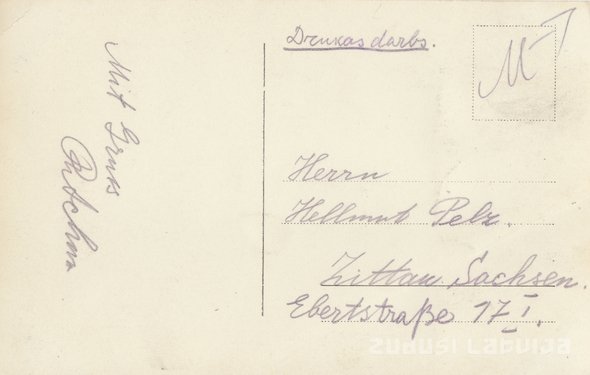 Mit Gruss
Drukas darbs.
M
Herrn
Hellmut Pelz.
Zittau Sachsen.
Ebertstraße 17 I.
zudusi latvija